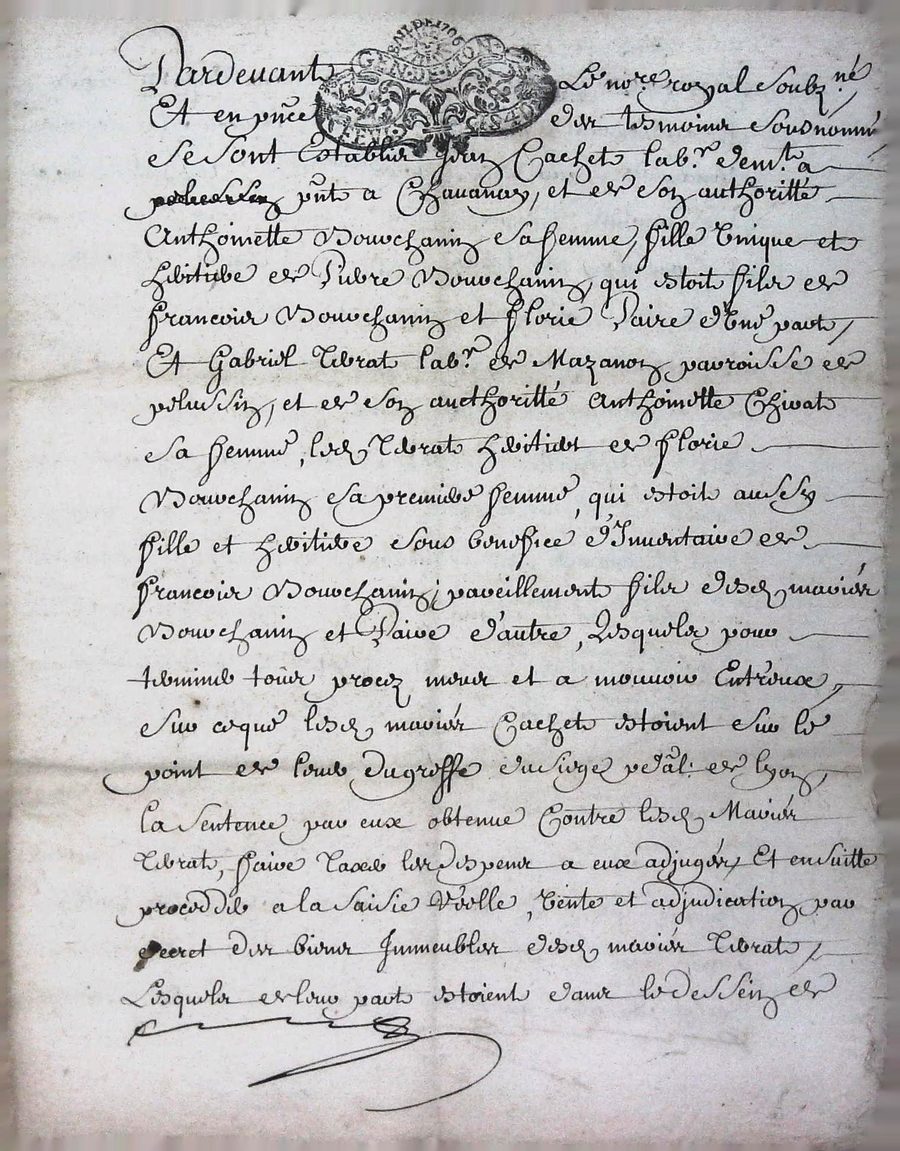 GEN. DE MON
Pardevant Le no.re royal soubz.né
Et en pnce des tesmoins sousnommé
se sont Establis Jean Cachet lab.r dem.t a
pnt a Chavanay, et de son authoritté
Anthoinette Bourchanin sa femme, fille Unique et
heritiere de Pierre Bourchanin, qui estoit fils de
francois Bourchanin et florie Paire d'Une part,
Et Gabriel Terrat lab.r de Mazanon parroisse de
pelussin, et de son aucthoritté Anthoinette Chirat
sa femme, led Terrat heritier de florie
Bourchanin sa premiere femme, qui estoit aussy
fille et heritiere sous benefice d'Inventaire de
francois Bourchanin, pareillement fils desd mariés
Bourchanin et Paire d'autre, Lesquels pour
terminer tous procez meus et a mouvoir Entreux,
sur ceque lesd mariés Cachet estoient sur le
point de lever du greffe du siege pedal. de lyon,
la sentence par eux obtenue Contre lesd Mariés
Terrat, faire Taxer les despens a eux adjugés, Et ensuitte
procedder a la saisie réelle, Vente et adjudication par
decret des biens Immeubles desd mariés Terrat,
Lesquels de leur part estoient dans le dessein de